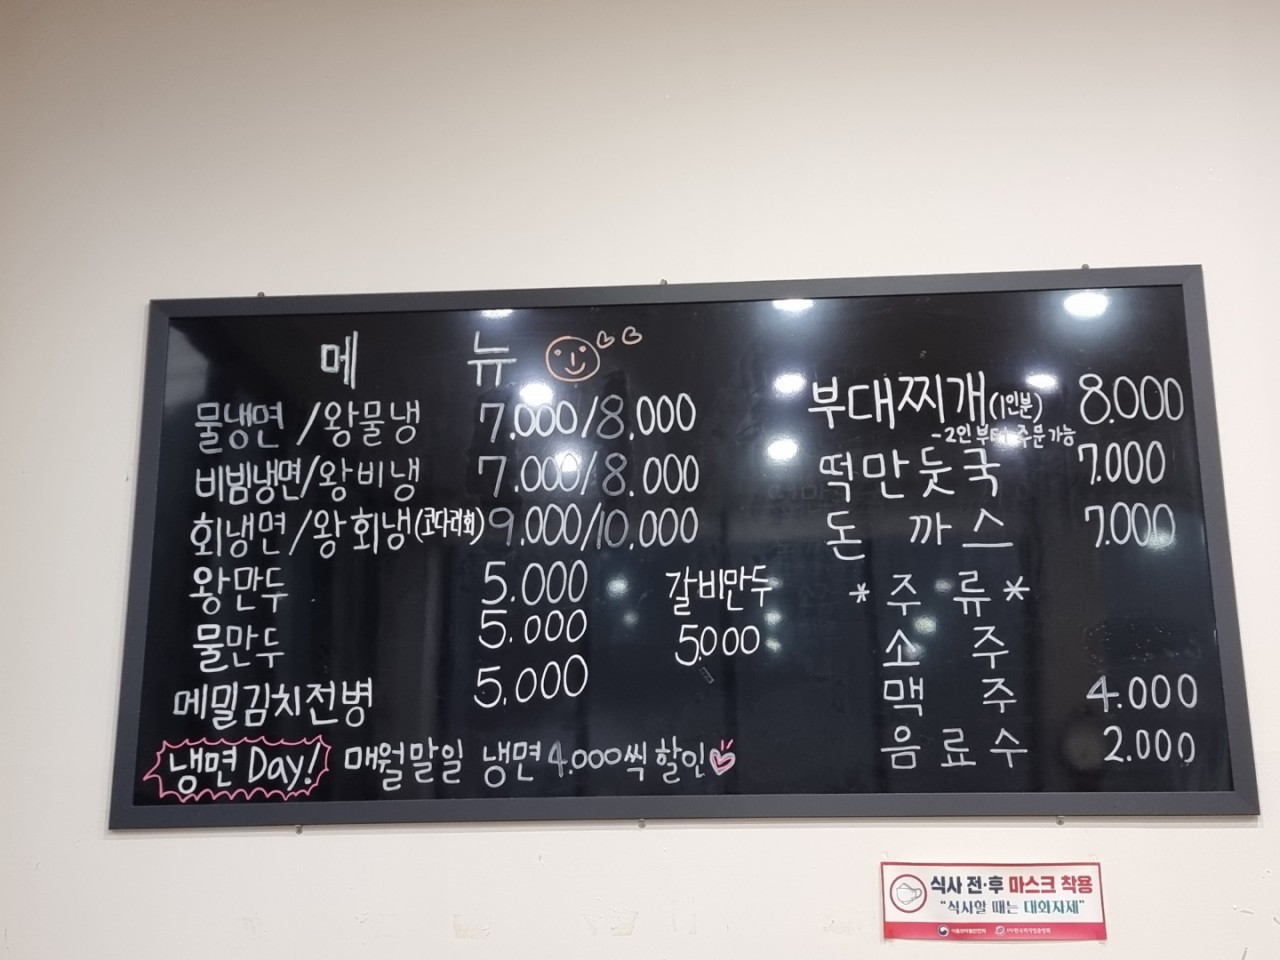 메 뉴
물냉면 /왕물냉 7.000/8.000
비빔냉면/왕비냉 7.000/8.000
회냉면/왕회냉(코다리회) 9.000/10.000
왕만두 5.000
물만두 5.000
메밀김치전병 5.000
갈비만두
5.000
냉면 Day! 매월말일 냉면 4.000씩 할인
부대찌개(1인분) 8.000
-2인 부터 주문 가능
떡만둣국 7.000
돈 까 스 7.000
*주 류*
소 주
맥 주 4.000
음 료 수 2.000
식사 전·후 마스크 착용
"식사할 때는 대화자제"
식품의약품안전처